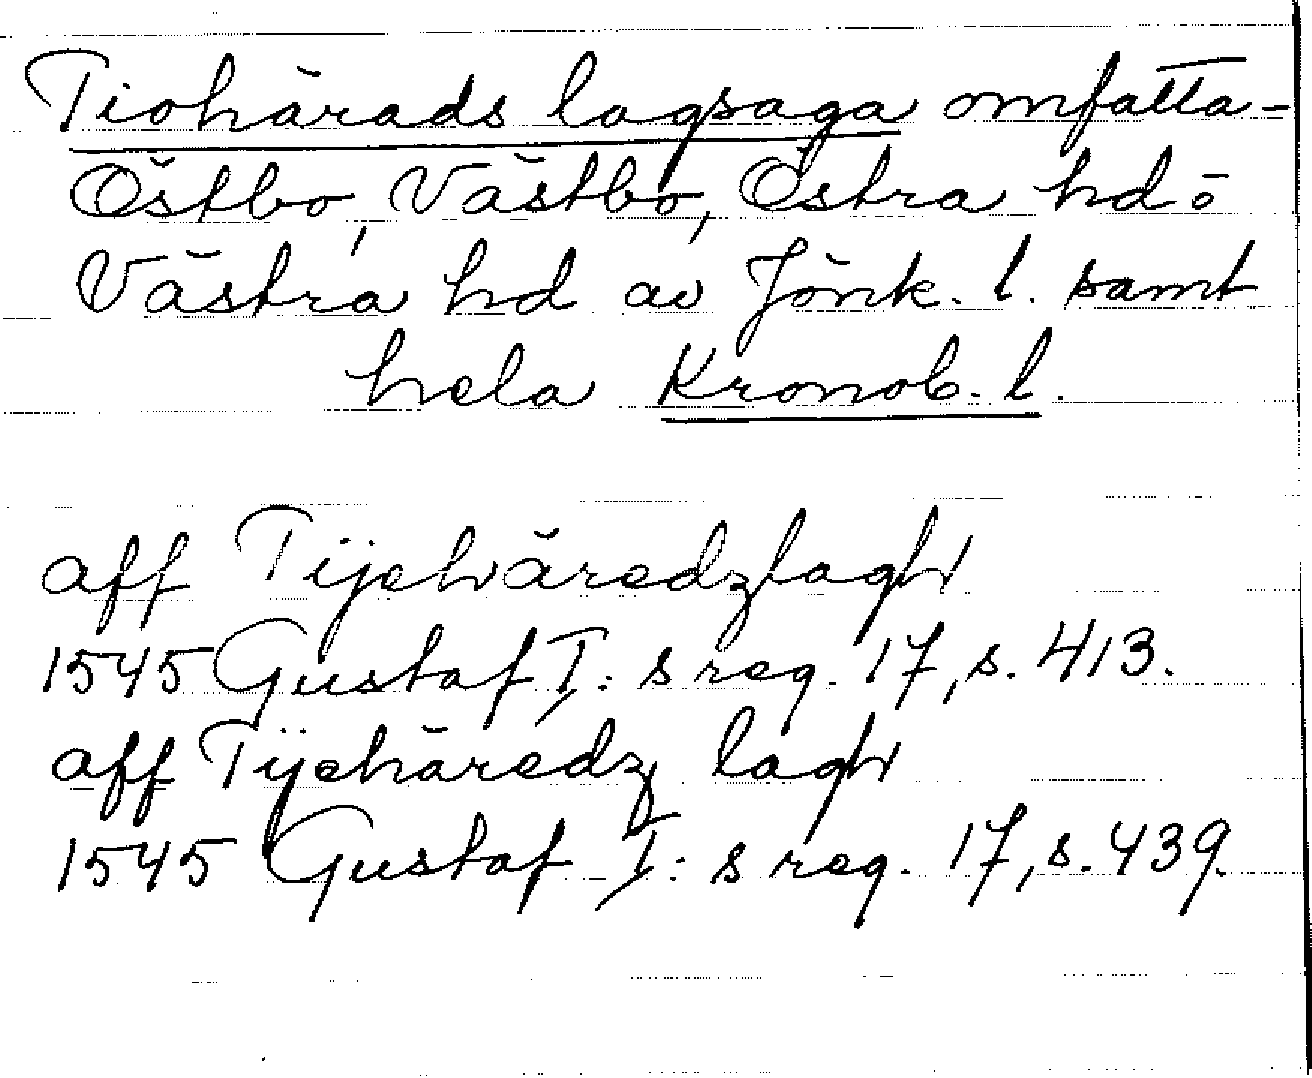 Tiohärads lagsaga omfatta-
Östbo, Västbo, Östra hd o
Västra hd av Jönk. l. samt
hela Kronob. l.
aff Tijehäredzlagh
1545 Gustaf I: s reg. 17, s. 413.
aff Tijehäredz lagh
1545 Gustaf I: s reg. 17, s. 439.